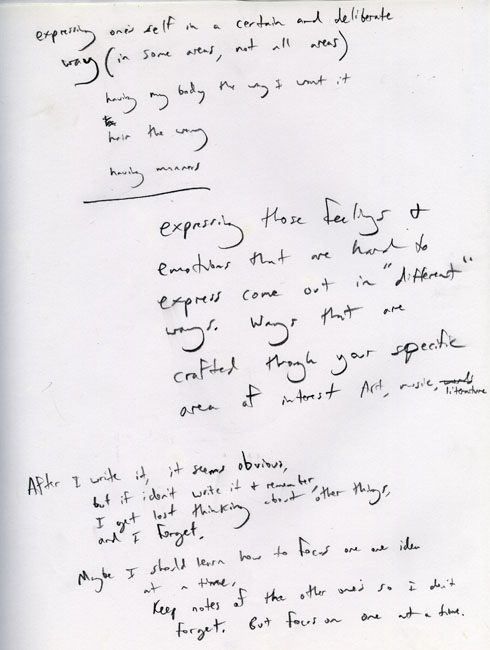 expressing one's self in a certain and deliberate
way (in some areas, not all areas)
having my body the way I want it
hair the way
having manners
expressing those feelings &
emotions that are hard to
express come out in "different"
ways. Ways that are
crafted though your specific
area of interest Art, music,
literature
After I write it, it seems obvious,
but if i don't write it & remember,
I get lost thinking about other things,
and I forget.
Maybe I should learn how to focus one one idea
at a time.
Keep notes of the other one's so I don't
forget. But focus on one at a time.